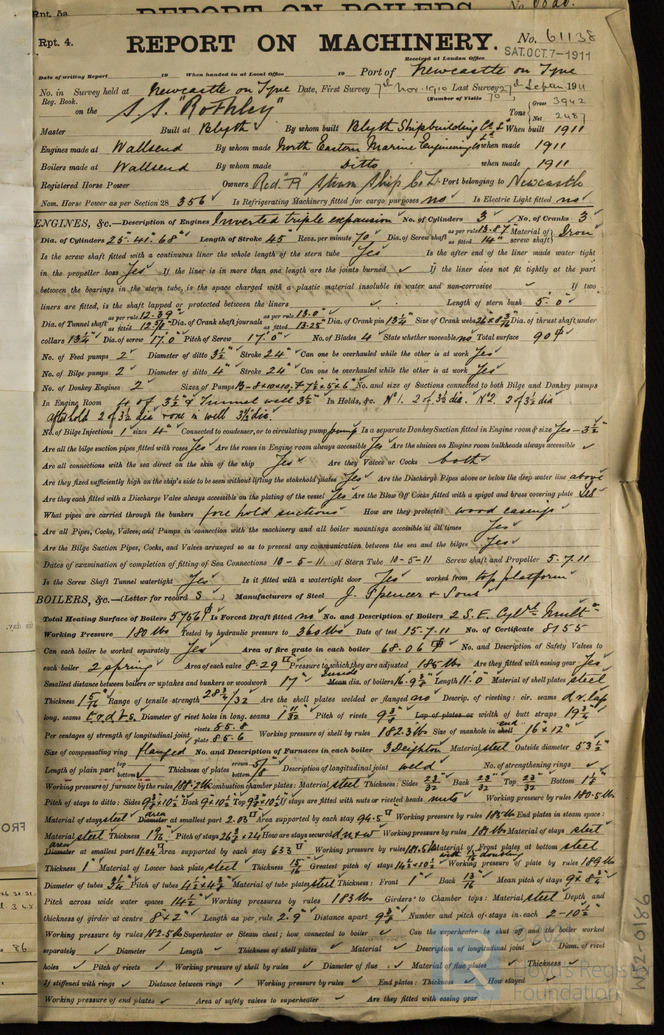 Rpt. 5a. REPORT ON BOILERS
Rpt. 4. REPORT ON MACHINERY. No. 61138
Received at London Office SAT. OCT. 7-1911
Date of writing Report 19 When handed in at Local Office 19 Port of Newcastle on Tyne
No. in Survey held at Newcastle on Tyne Date, First Survey 7th Nov. 1910 Last Survey 27th Septem 1911
Reg. Book. (Number of Visits 70)
on the S.S. "Rothley" Tons Gross 3942 Net 2487
Master Built at Blyth By whom built Blyth Shipbuilding Co Ld When built 1911
Engines made at Wallsend By whom made North Eastern Marine Engineering Co Ld when made 1911
Boilers made at Wallsend By whom made Ditto when made 1911
Registered Horse Power Owners Red "R" Steam Ship Co Ld Port belonging to Newcastle
Nom. Horse Power as per Section 28 356 Is Refrigerating Machinery fitted for cargo purposes no Is Electric Light fitted no
ENGINES, &c.—Description of Engines Inverted triple expansion No. of Cylinders 3 No. of Cranks 3
Dia. of Cylinders 25"-41"-68" Length of Stroke 45" Revs. per minute 70 Dia. of Screw shaft as per rule 13.87" as fitted 14" Material of screw shaft Iron
Is the screw shaft fitted with a continuous liner the whole length of the stern tube Yes Is the after end of the liner made water tight
in the propeller boss Yes If the liner is in more than one length are the joints burned ✓ If the liner does not fit tightly at the part
between the bearings in the stern tube, is the space charged with a plastic material insoluble in water and non-corrosive ✓ If two
liners are fitted, is the shaft lapped or protected between the liners ✓ Length of stern bush 5'-0"
Dia. of Tunnel shaft as per rule 12.39" as fitted Dia. of Crank shaft journals as per rule 13.0" as fitted 13.25" Dia. of Crank pin 13¼" Size of Crank webs Dia. of thrust shaft under
collars 13¼" Dia. of screw 17'.0" Pitch of Screw 17'.0" No. of Blades 4 State whether moveable no Total surface 90 ф
No. of Feed pumps 2 Diameter of ditto 3½" Stroke 24" Can one be overhauled while the other is at work Yes
No. of Bilge pumps 2 Diameter of ditto 4" Stroke 24" Can one be overhauled while the other is at work Yes
No. of Donkey Engines 2 Sizes of Pumps No. and size of Suctions connected to both Bilge and Donkey pumps
In Engine Room 4 of 3½" & Tunnel well 3½" In Holds, &c. No 1. 2 of 3½ dia. No 2. 2 of 3½ dia
after hold 2 of 3½ dia one in well 3½ dia.
No. of Bilge Injections 1 sizes 4" Connected to condenser, or to circulating pump pump Is a separate Donkey Suction fitted in Engine room & size Yes - 3½"
Are all the bilge suction pipes fitted with roses Yes Are the roses in Engine room always accessible Yes Are the sluices on Engine room bulkheads always accessible ✓
Are all connections with the sea direct on the skin of the ship Yes Are they Valves or Cocks both
Are they fixed sufficiently high on the ship's side to be seen without lifting the stokehold plates Yes Are the Discharge Pipes above or below the deep water line above
Are they each fitted with a Discharge Valve always accessible on the plating of the vessel Yes Are the Blow Off Cocks fitted with a spigot and brass covering plate Yes
What pipes are carried through the bunkers fore hold suctions How are they protected wood casings
Are all Pipes, Cocks, Valves, and Pumps in connection with the machinery and all boiler mountings accessible at all times Yes
Are the Bilge Suction Pipes, Cocks, and Valves arranged so as to prevent any communication between the sea and the bilges Yes
Dates of examination of completion of fitting of Sea Connections 10-5-11 of Stern Tube 10-5-11 Screw shaft and Propeller 5.7.11
Is the Screw Shaft Tunnel watertight Yes Is it fitted with a watertight door Yes worked from top platform
BOILERS, &c.—(Letter for record S) Manufacturers of Steel J. Spencer & Sons
Total Heating Surface of Boilers 5756 ф Is Forced Draft fitted no No. and Description of Boilers 2 S.E. Cyldl Mult
Working Pressure 180 lbs Tested by hydraulic pressure to 360 lbs Date of test 15-7-11 No. of Certificate 8155
Can each boiler be worked separately Yes Area of fire grate in each boiler 68.06 ф No. and Description of Safety Valves to
each boiler 2 spring Area of each valve 8.29" Pressure to which they are adjusted 185 lbs Are they fitted with easing gear Yes
Smallest distance between boilers or uptakes and bunkers or woodwork 17" Mean dia. of boilers Length 11.0" Material of shell plates steel
Thickness Range of tensile strength 28½/32 Are the shell plates welded or flanged no Descrip. of riveting: cir. seams d.r. lap
long. seams Diameter of rivet holes in long. seams Pitch of rivets Lap of plates or width of butt straps 19¾"
Per centages of strength of longitudinal joint rivets plate 85.6 Working pressure of shell by rules 182.3 lbs Size of manhole in shell end 16" x 12"
Size of compensating ring flanged No. and Description of Furnaces in each boiler 3 Deighton Material steel Outside diameter 53½"
Length of plain part top bottom Thickness of plates crown bottom Description of longitudinal joint weld No. of strengthening rings ✓
Working pressure of furnace by the rules Combustion chamber plates: Material steel Thickness: Sides 23/32 Back 23/32 Top 23/32 Bottom
Pitch of stays to ditto: Sides Back Top If stays are fitted with nuts or riveted heads nuts Working pressure by rules 180.5 lbs
Material of stays steel Diameter at smallest part 2.03 Area supported by each stay 94.5 Working pressure by rules End plates in steam space:
Material steel Thickness Pitch of stays How are stays secured d n & w Working pressure by rules Material of stays steel
Diameter at smallest part Area supported by each stay 633 Working pressure by rules Material of Front plates at bottom steel
Thickness 1" Material of Lower back plate steel Thickness 15/16 Greatest pitch of stays Working pressure of plate by rules 189 lbs
Diameter of tubes 3¼" Pitch of tubes Material of tube plates steel Thickness: Front 1" Back 13/16 Mean pitch of stays
Pitch across wide water spaces 14½" Working pressures by rules 183 lbs Girders to Chamber tops: Material steel Depth and
thickness of girder at centre 8" x 2" Length as per rule 2'-9" Distance apart 9¾" Number and pitch of stays in each 2-10½"
Working pressure by rules 182.5 lbs Superheater or Steam chest; how connected to boiler ✓ Can the superheater be shut off and the boiler worked
separately ✓ Diameter ✓ Length ✓ Thickness of shell plates ✓ Material ✓ Description of longitudinal joint ✓ Diam. of rivet
holes ✓ Pitch of rivets ✓ Working pressure of shell by rules ✓ Diameter of flue ✓ Material of flue plates ✓ Thickness ✓
If stiffened with rings ✓ Distance between rings ✓ Working pressure by rules ✓ End plates: Thickness ✓ How stayed ✓
Working pressure of end plates ✓ Area of safety valves to superheater ✓ Are they fitted with easing gear ✓
W52-0186
Lloyd's Register
Foundation